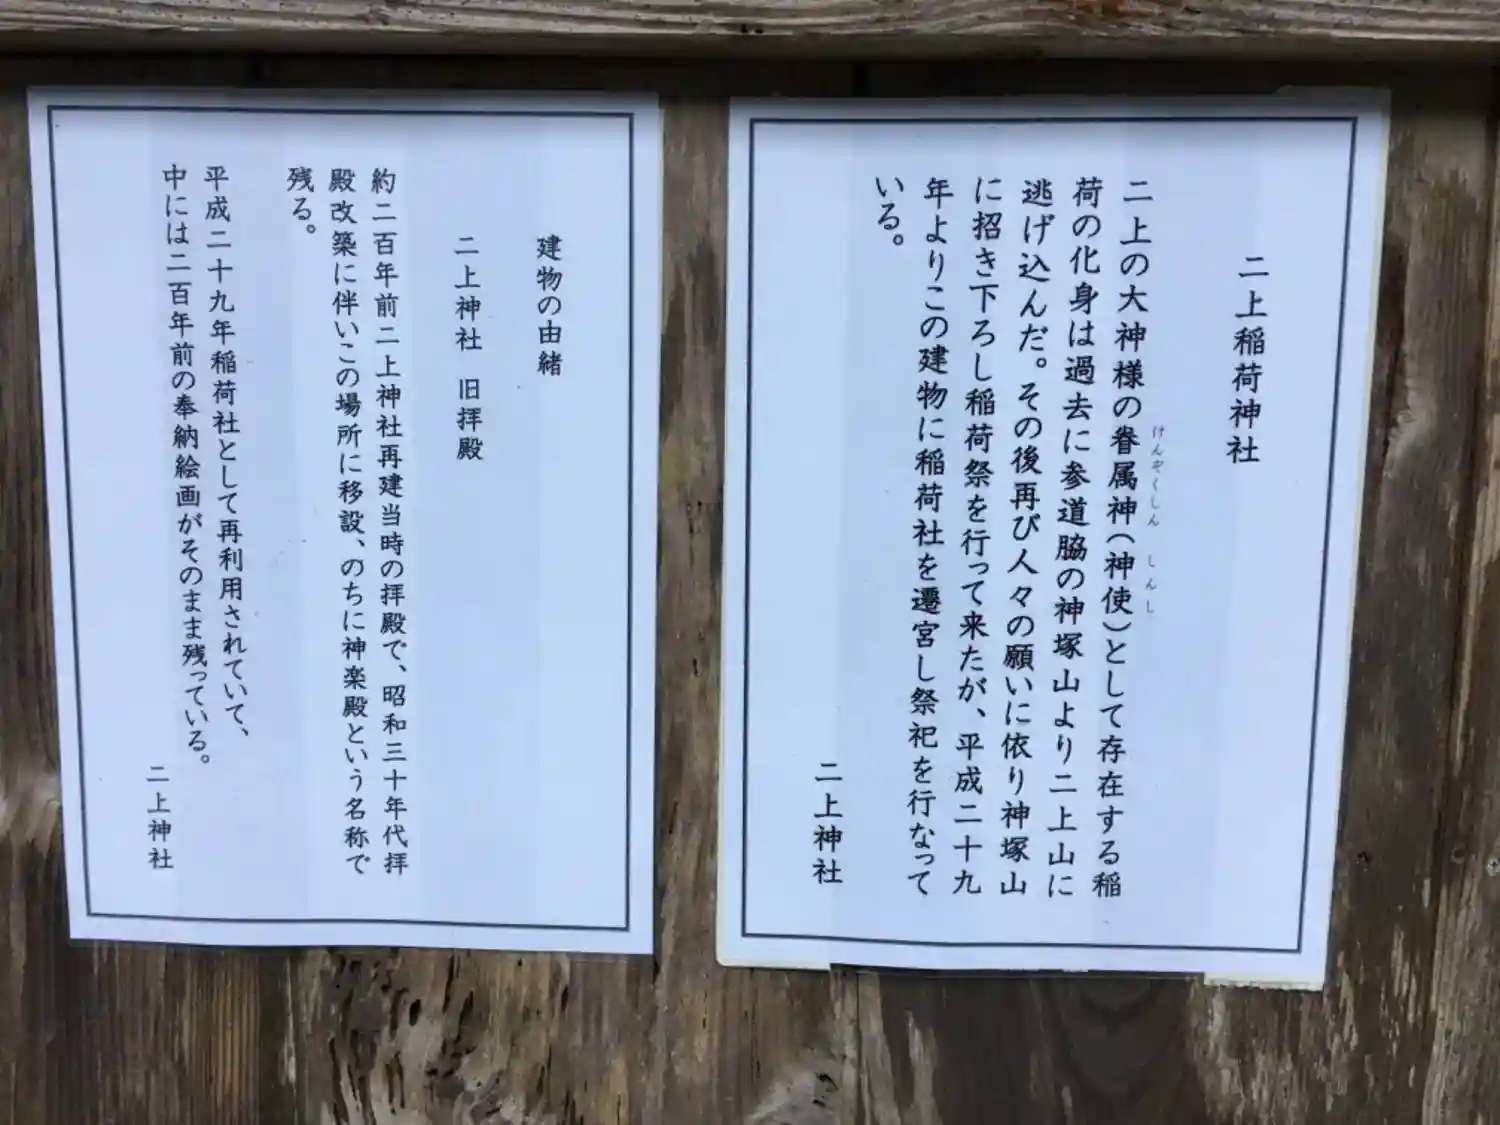 二上稲荷神社
二上の大神様の眷属神（神使）として存在する稲
けんぞくしん　しんし
荷の化身は過去に参道脇の神塚山より二上山に
逃げ込んだ。その後再び人々の願いに依り神塚山
に招き下ろし稲荷祭を行って来たが、平成二十九
年よりこの建物に稲荷社を遷宮し祭祀を行なって
いる。
二上神社
建物の由緒
二上神社　旧拝殿
約二百年前二上神社再建当時の拝殿で、昭和三十年代拝
殿改築に伴いこの場所に移設、のちに神楽殿という名称で
残る。
平成二十九年稲荷社として再利用されていて、
中には二百年前の奉納絵画がそのまま残っている。
二上神社